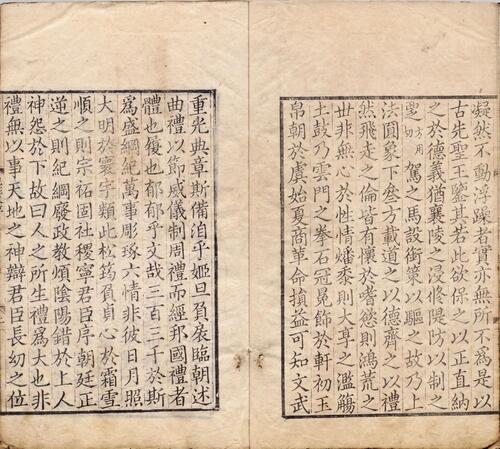 凝然不動浮躁者實亦無所不爲是以
古先聖王鑒其若此欲保之以正直納
之於德義猶襄陵之浸脩隄防以制之
覂方用切駕之馬設銜策以驅之故乃上
法圓象下叁方載道之以德齊之以禮
然飛走之倫皆有懷於嗜慾則鴻荒之
丗非無心於性情燔黍則大享之濫觴
土鼓乃雲門之拳石冠冕飾於軒初玉
帛朝於虞始夏商革命損益可知文武
重光典章斯備洎乎姬旦負扆臨朝述
曲禮以節威儀制周禮而經邦國禮者
體也履也郁郁乎文哉三百三千於斯
爲盛綱紀萬事彫琢六情非彼日月照
大明於寰宇類此松筠負貞心於霜雪
順之則宗祏固社稷寧君臣序朝廷正
逆之則紀綱廢政教煩陰陽錯於上人
神怨於下故曰人之所生禮爲大也非
禮無以事天地之神辯君臣長幼之位